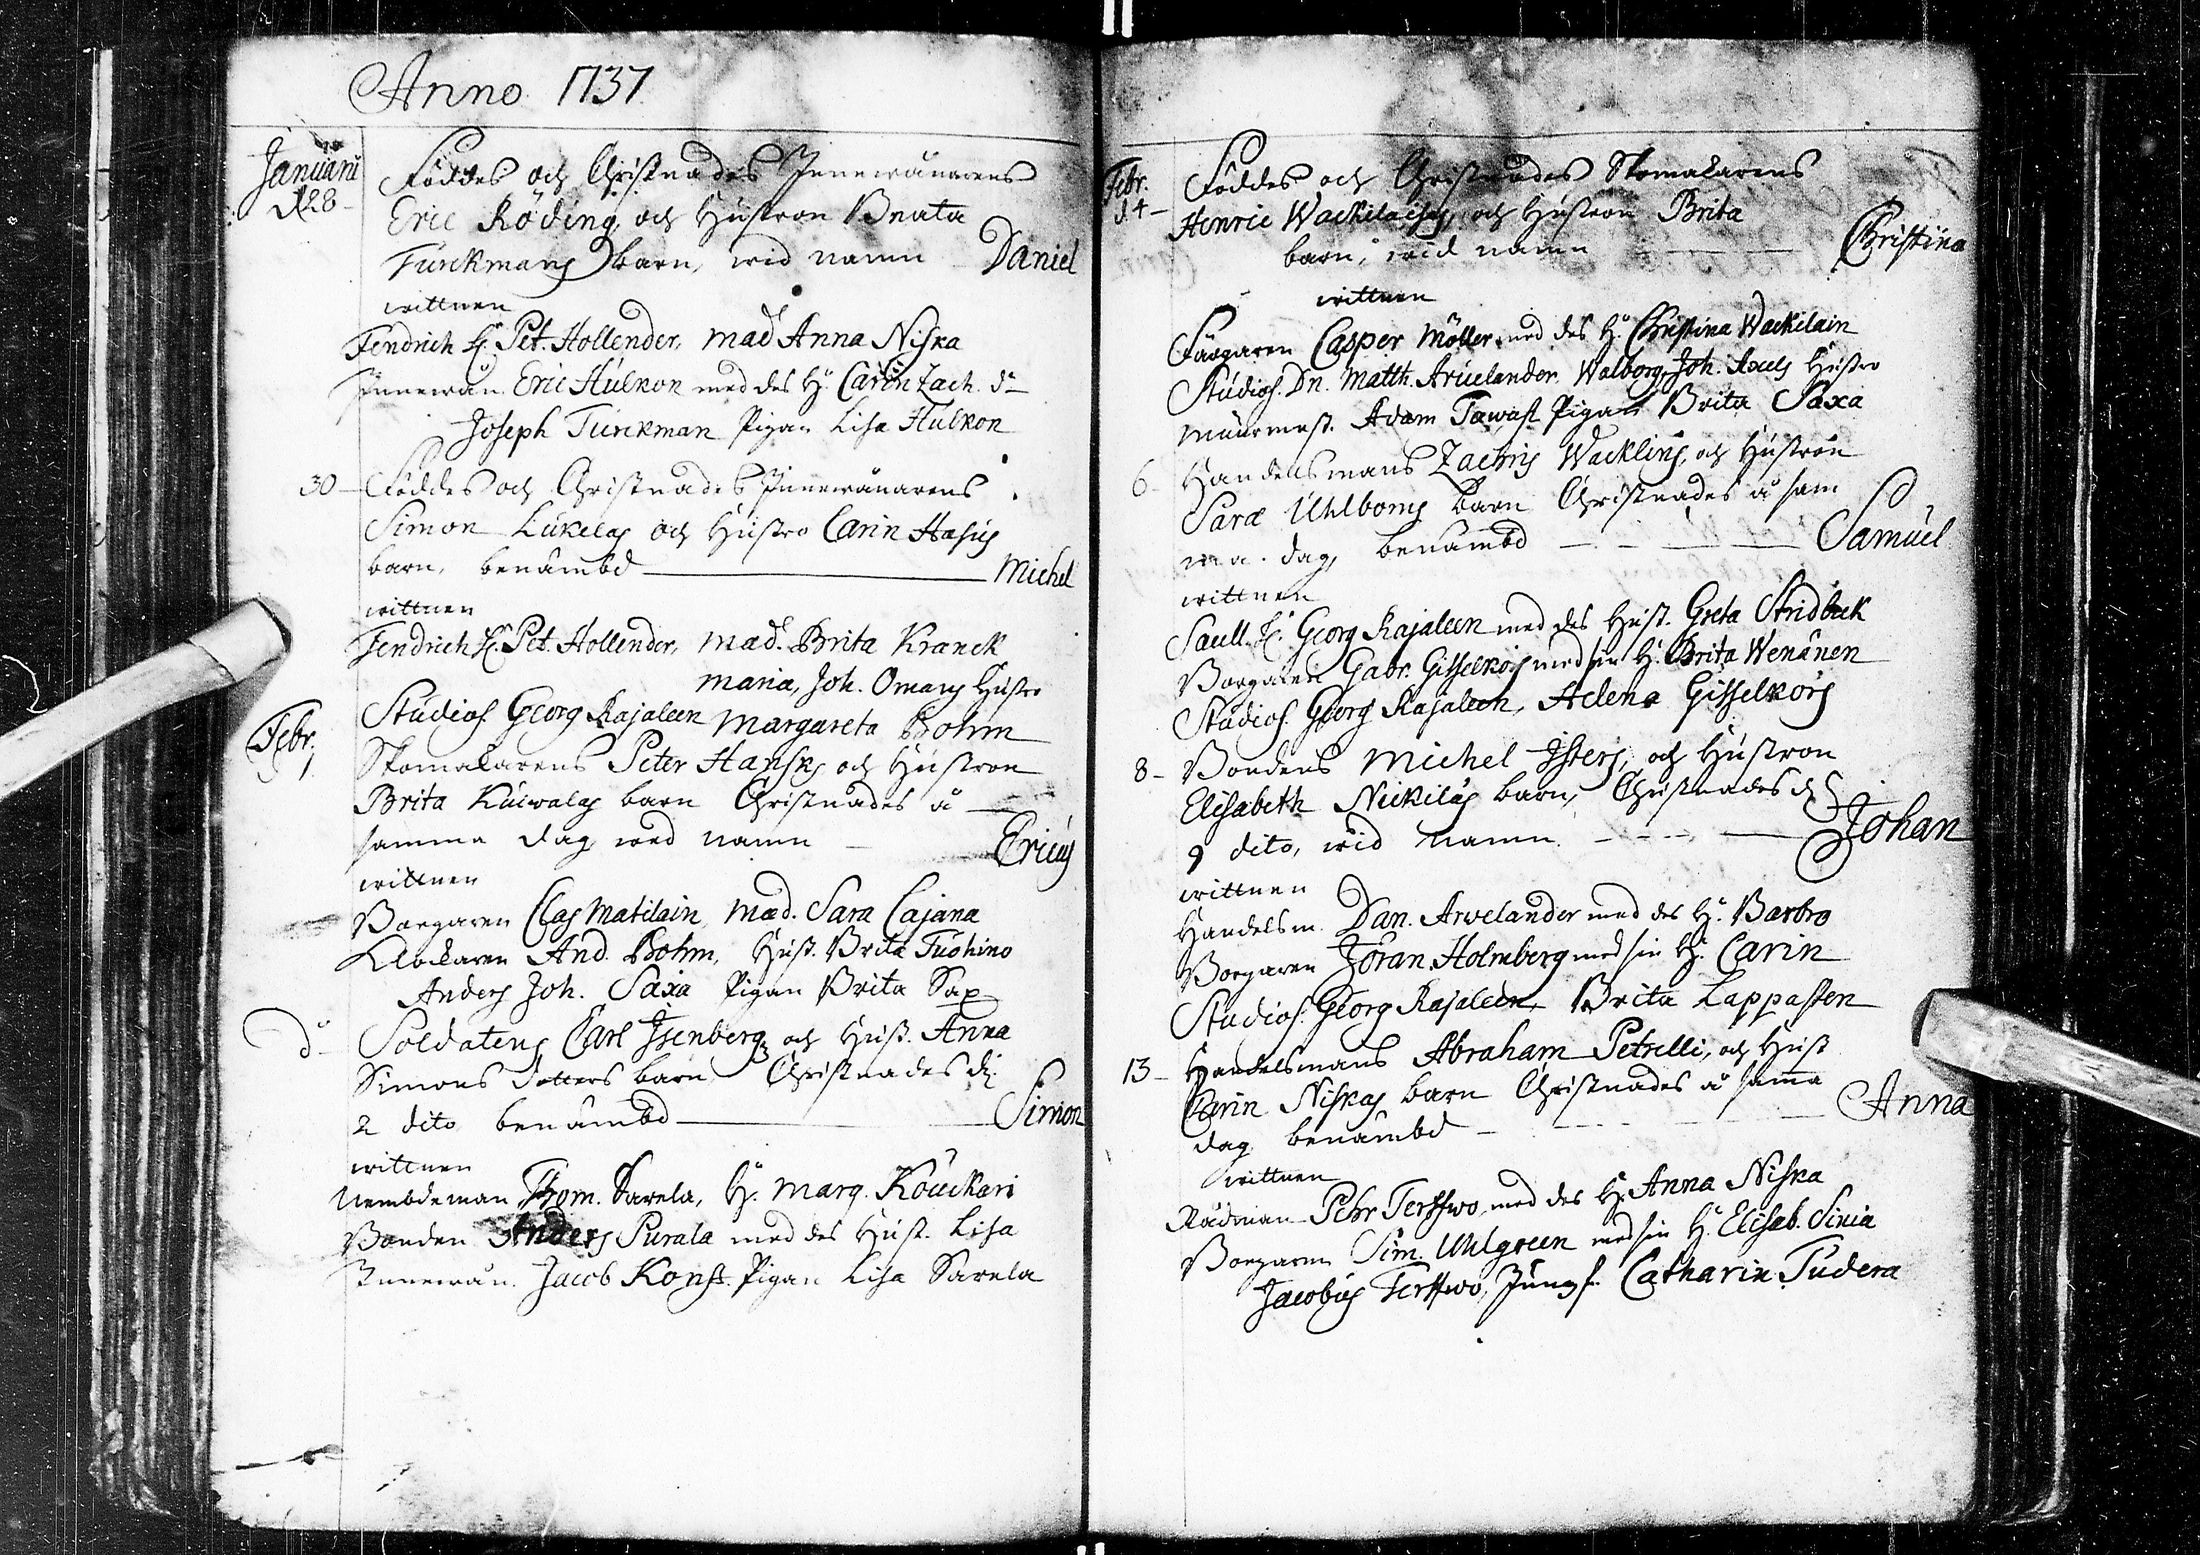 Anno 1737
Januarii
d. 28 -
Föddes och Christnades Innewånarens
Eric Röding, och Hustron Beata
Turckmans barn, wid namn Daniel
wittnen
Fendrich H. Pet. Hollender, Mad. Anna Niska
Innewån. Eric Hulkon med des H. Carin Zach. dr
Joseph Turckman Pigan Lisa Hulkon
30 - Föddes och Christnades Innewånarens
Simon Lukelas och Hustro Carin Hasus
barn, benämbd Michel
wittnen
Fendrich H. Pet. Hollender, Mad. Brita Kranck
Maria, Joh. Omans Hustro
Studios. Georg Rajaleen Margareta Bohm
Febr.
1 Skomakarens Peter Hansks och Hustron
Brita Kuiwalas barn Christnades å
samma dag, wed namn Ericus
wittnen
Borgaren Clas Matilain, Mad. Sara Cajana
Klockaren And. Bohm, Hust. Brita Tuohino
Anders Joh. Saxa Pigan Brita Sax
d. Soldatens Carl Isenberg, och Hust. Anna
Simons dotters barn Christnades d.
2 dito benämbd Simon
wittnen
Nembdeman Thom. Sarela, H. Marg. Kouckari
Bonden Anders Purala med des Hust. Lisa
Innewån. Jacob Konst. Pigan Lisa Sarela
Febr.
d. 4 - Föddes och Christnades Skomakarens
Henric Wackilains, och Hustron Brita
barn, wid namn Christina
wittnen
Färgaren Casper Möller, med des H. Christina Wackilain
Studios. Dn. Matth. Arvelander. Walborg, Joh. Hustro
Muurmest. Adam Tawast Pigan Brita Saxa
6 - Handelsmans Zachris Wacklins, och Hustron
Sara Uhlboms barn Christnades å sam
ma dag, benämbd Samuel
wittnen
Sacell. H. Georg Rajaleen med des Hust. Greta Stridbeck
Borgaren Gabr. Gisselkors med sin H. Brita Wenänen
Studios. Georg Rajaleen, Helena Gisselkors
8 - Bondens Michel Isters, och Hustron
Elisabeth Neckilas barn, Christnades d.
9 dito, wid namn Johan
wittnen
Handelsm. Dan. Arvelander med des H. Barbro
Borgaren Jöran Holmberg med sin H. Carin
Studios. Georg Rajaleen, Brita Lappasten
13 - Handelsmans Abraham Petrelli, och Hust
Carin Niskas barn Christnades å samma
dag benämbd Anna
wittnen
Rådman Pehr Terffwo, med des H. Anna Niska
Borgaren Sim. Uhlgreen med sin H. Elisab. Siria
Jacobus Terffwo, Jungf. Catharin Tudera